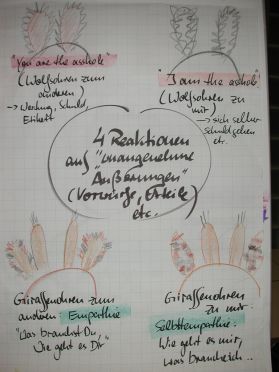 "You are the asshole"
(Wolfsohren zum
anderen)
→ Wertung, Schuld,
Etikett
"I am the asshole"
(Wolfsohren zu
mir)
→ sich selber
Schuld geben
etc.
4 Reaktionen
auf "unangenehme
Äußerungen"
(Vorwürfe, Urteile
etc.
Giraffenohren zum
anderen: Empathie
"Was brauchst Du,
Wie geht es Dir"
Giraffenohren
zu mir:
Selbstempathie:
Wie geht es mir,
was brauche ich..